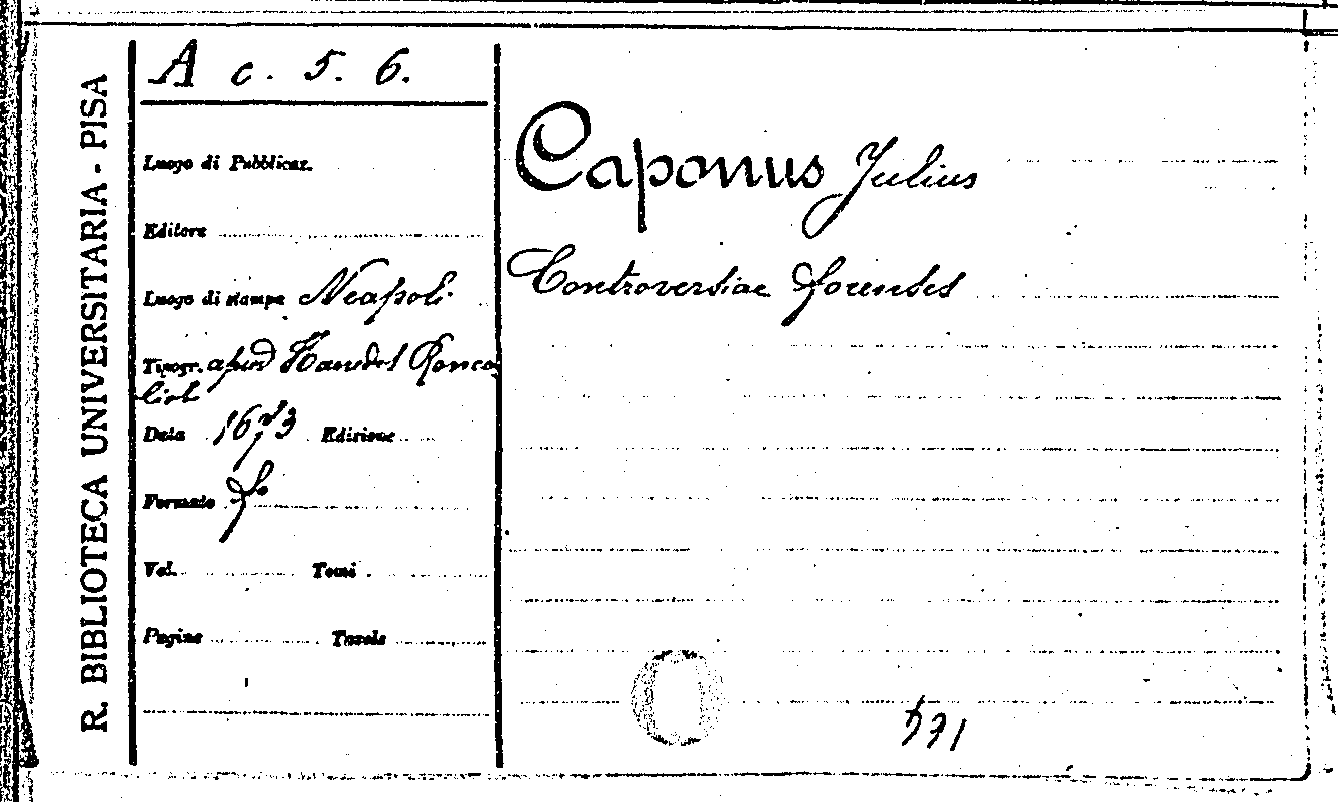 R. BIBLIOTECA UNIVERSITARIA - PISA
A c. 5. 6.
Luogo di Pubblicaz.
Editore
Luogo di stampa Neapoli
Tipogr. apud
Data 1673 Edizione
Formato f.º
Vol. Tomi
Pagine Tavole
Caponus Julius
Controversiae forenses